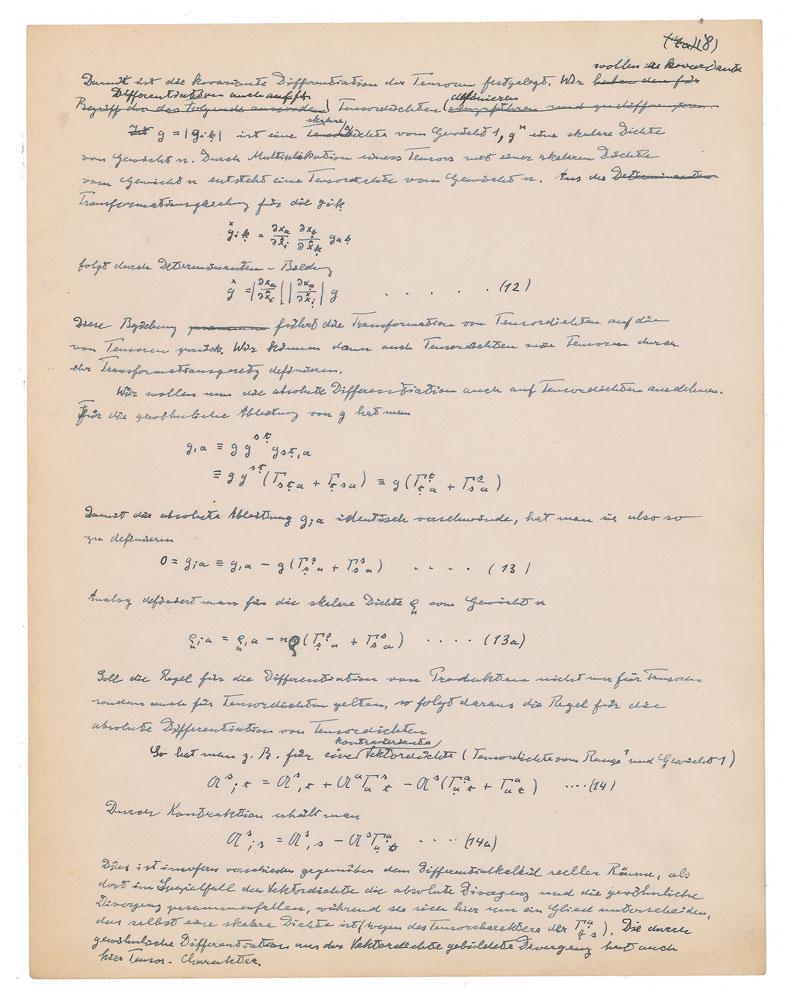 (7a) (18)
wollen die kovariante
Damit ist die kovariante Differentiation der Tensoren festgelegt. Wir haben den für
Differentiation auch auf definieren
Begriff Tensordichten
skalare
Ist g = |gik| ist eine Tensordichte vom Gewicht 1, gⁿ eine skalare Dichte
vom Gewicht n. Durch Multiplikation eines Tensors mit einer skalaren Dichte
vom Gewicht n entsteht eine Tensordichte vom Gewicht n. Aus der Determinanten
Transformationsgleichung für die gik
g*ik = ∂xa/∂x*i ∂xb/∂x*k gab
folgt durch Determinanten-Bildung
g* = |∂xa/∂x*i| |∂xa/∂x*i| g . . . . . (12)
Diese Beziehung führt die Transformation von Tensordichten auf die
von Tensoren zurück. Wir können dann auch Tensordichten wie Tensoren durch
ihr Transformationsgesetz definieren.
Wir wollen nun die absolute Differentiation auch auf Tensordichten ausdehnen.
Für die gewöhnliche Ableitung von g hat man
g,a ≡ g g^st gst,a
≡ g g^st (Γsta + Γtsa) ≡ g(Γ^t_ta + Γ^s_sa)
Damit die absolute Ableitung g;a identisch verschwinde, hat man sie also so
zu definieren
0 = g;a ≡ g,a − g(Γ^s_sa + Γ^s_sa) . . . . . (13)
Analog definiert man für die skalare Dichte ϱ vom Gewicht n
ϱ;a = ϱ,a − nϱ(Γ^s_sa + Γ^s_sa) . . . . (13a)
Soll die Regel für die Differentiation von Produkten nicht nur für Tensoren
sondern auch für Tensordichten gelten, so folgt daraus die Regel für die
absolute Differentiation von Tensordichten
kontravariante
So hat man z. B. für eine Vektordichte (Tensordichte vom Range 1 und Gewicht 1)
𝔄^s;t = 𝔄^s,t + 𝔄^a Γ^s_at − 𝔄^s(Γ^a_at + Γ^a_at) . . . . (14)
Durch Kontraktion erhält man
𝔄^s;s = 𝔄^s,s − 𝔄^s Γ^a_at . . . . (14a)
Dies ist insofern verschieden gegenüber dem Differentialkalkül reeller Räume, als
dort im Spezialfall der Vektordichte die absolute Divergenz und die gewöhnliche
Divergenz zusammenfallen, während sie sich hier um ein Glied unterscheiden,
das selbst eine skalare Dichte ist (wegen des Tensorcharakters der Γ^a_ts). Die durch
gewöhnliche Differentiation aus der Vektordichte gebildete Divergenz hat auch
hier Tensor-Charakter.